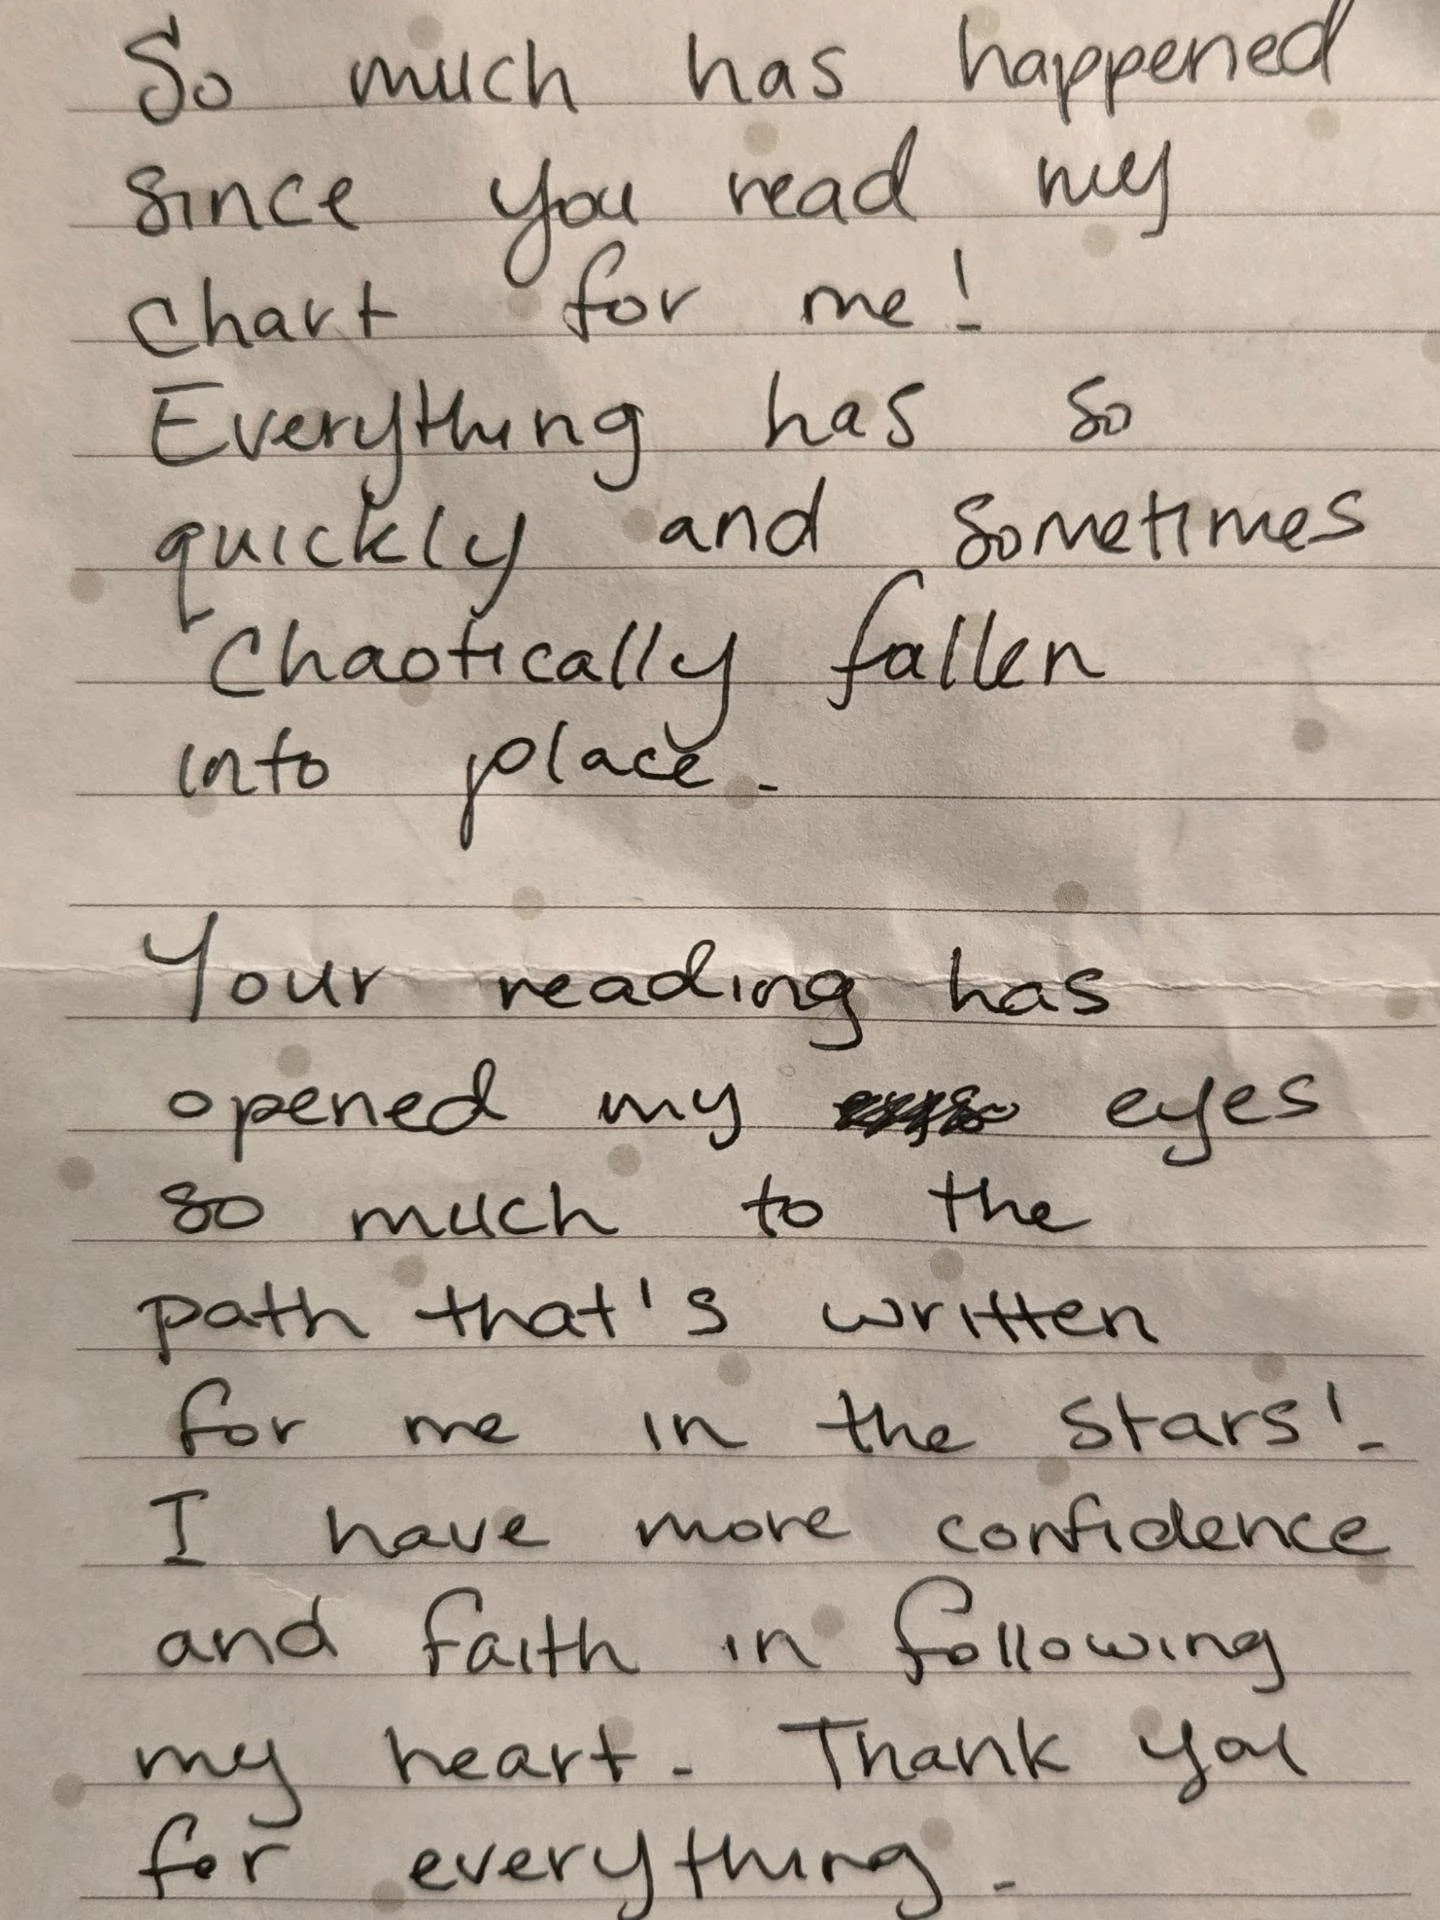 So much has happened
since you read my
chart for me!
Everything has so
quickly and sometimes
chaotically fallen
into place.
Your reading has
opened my eyes
so much to the
path that's written
for me in the stars!
I have more confidence
and faith in following
my heart. Thank you
for everything.